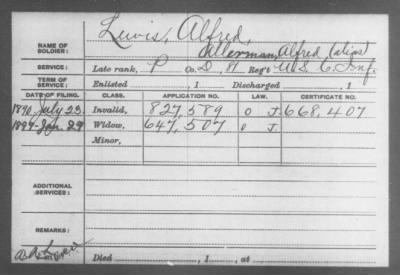 Lewis, Alfred,
NAME OF SOLDIER: Allerman, Alfred (alias)
SERVICE: Late rank, P Co. D, 11 Reg't U.S.C. Inf.
TERM OF SERVICE: Enlisted , 1 Discharged , 1
DATE OF FILING. CLASS. APPLICATION NO. LAW. CERTIFICATE NO.
1890 July 23 Invalid, 827,589 O J. 668,407
1897 Jan 29 Widow, 647,507 O J.
Minor,
ADDITIONAL SERVICES:
REMARKS:
Died , 1 , at